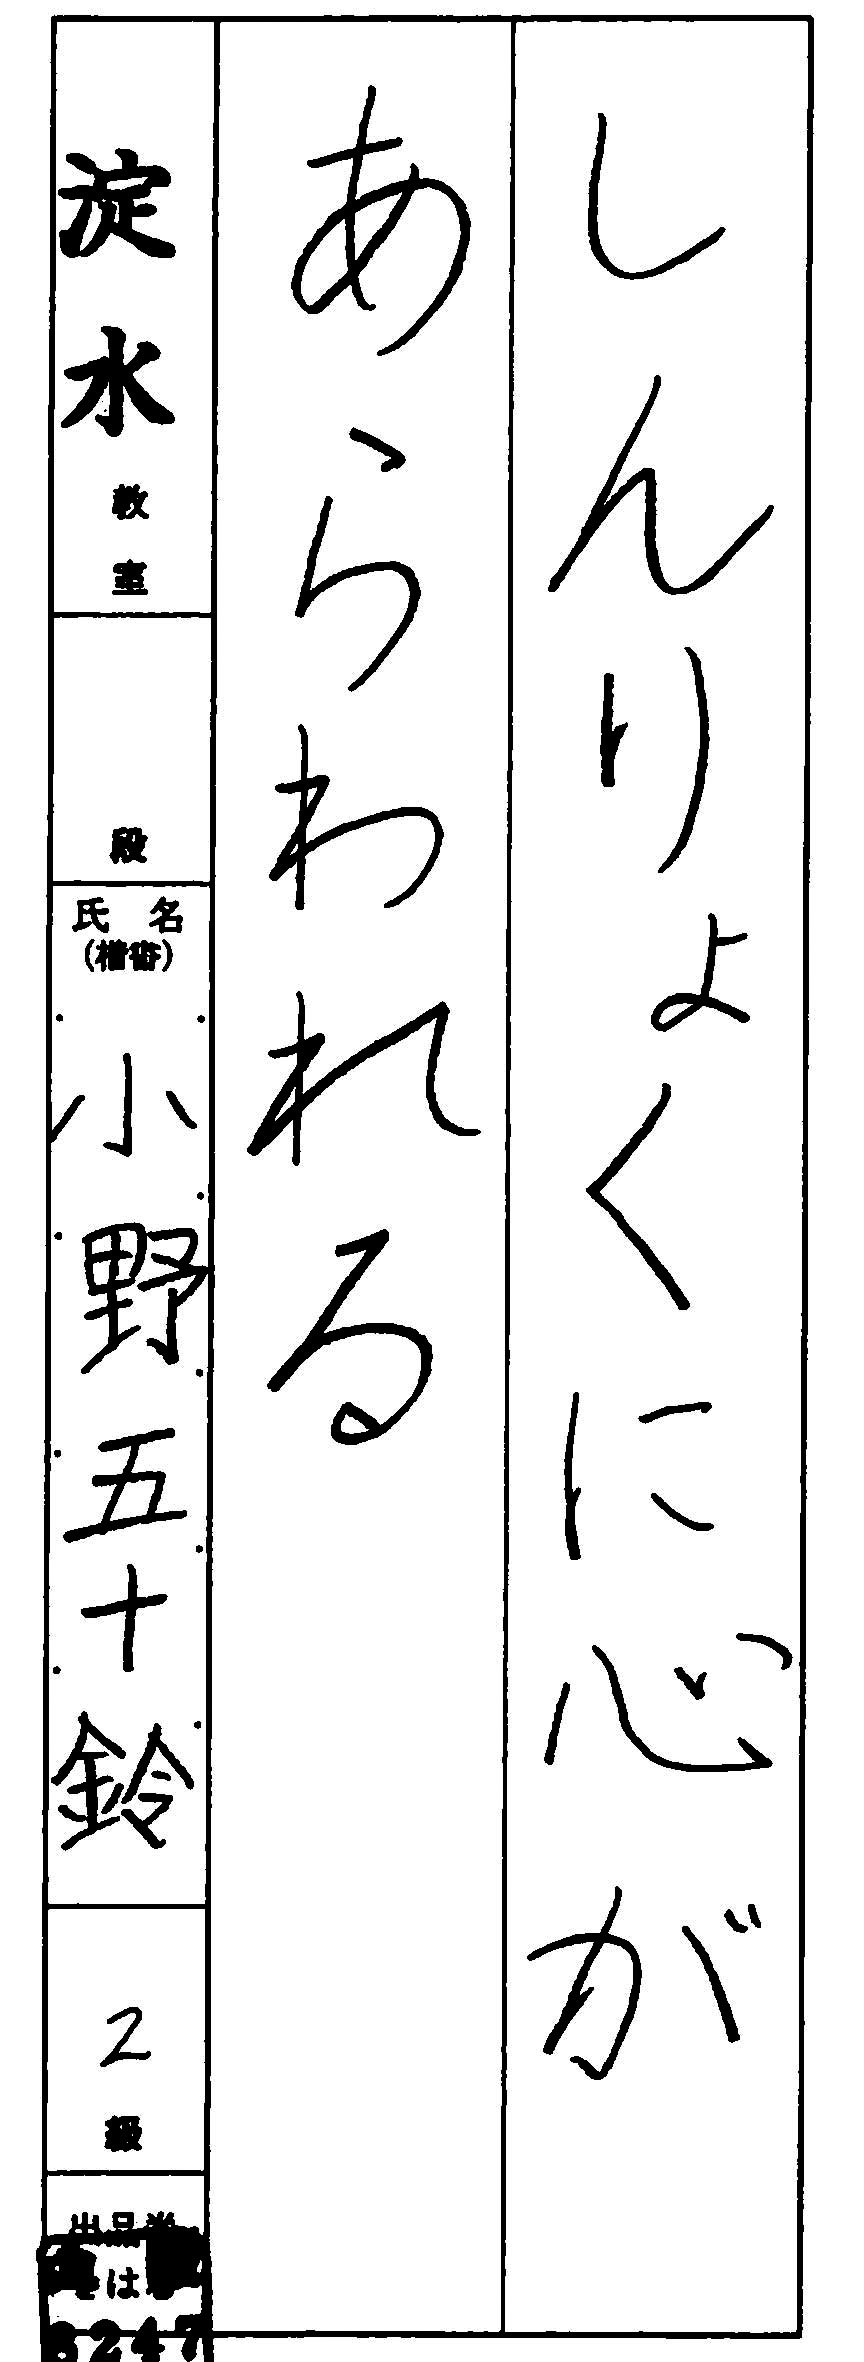 しんりょくに心が
あらわれる
淀水教室
段
氏名
(楷書)
小野五十鈴
2級
出品券
は
8247